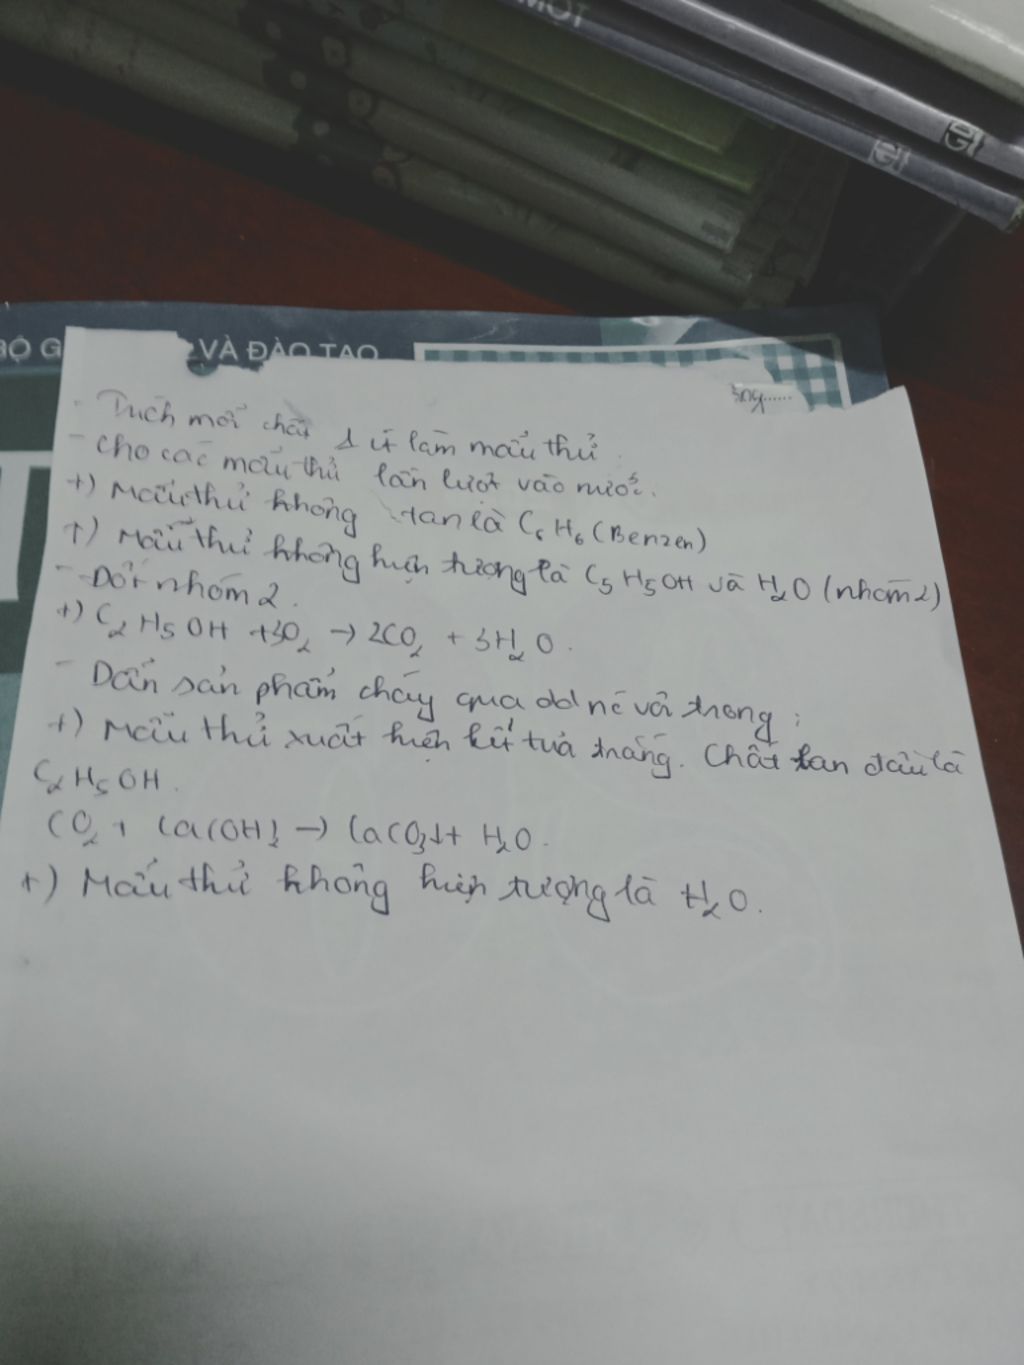 MỘT
BỘ G VÀ ĐÀO TẠO
- Trích mỗi chất 1 ít làm mẫu thử.
- Cho các mẫu thử lần lượt vào nước.
+) Mẫu thử không tan là C6H6 (Benzen)
+) Mẫu thử không hiện tượng là C5H5OH và H2O (nhóm 2)
- Đốt nhóm 2.
+) C2H5OH + 3O2 → 2CO2 + 3H2O.
- Dẫn sản phẩm cháy qua dd nc vôi trong:
+) Mẫu thử xuất hiện kết tủa trắng. Chất ban đầu là
C2H5OH.
CO2 + Ca(OH)2 → CaCO3↓ + H2O.
+) Mẫu thử không hiện tượng là H2O.